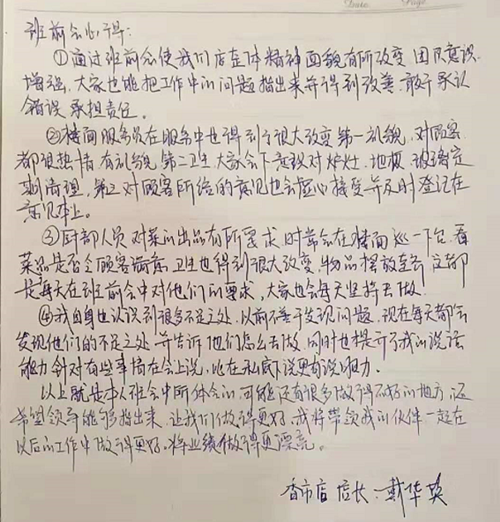 班前会心得:
①通过班前会使我们店在体精神面貌有所改变 团队意识
增强,大家也能把工作中的问题指出来并得到改善,敢于承认
错误 承担责任。
②楼面服务员在服务中也得到了很大改变 第一礼貌,对顾客
都很热情有礼貌 第二卫生 大家会下意识对炉灶、地板、玻璃定
期清理,第三对顾客所给的意见也会虚心接受并及时登记在
意见本上。
③厨部人员对菜的出品有所要求 时常会在楼面巡一下台,看
菜品是否令顾客满意 卫生也得到很大改变,物品摆放在
是每天在班前会中对他们的要求,大家也会每天坚持去做。
④我自身也认识到很多不足之处,以前不善于发现问题,现在每天都会
发现他们的不足之处并告诉他们怎么去做 同时也提升了我的说话
能力 针对有些事情在会上说,比在私底下说更有说服力。
以上就是本人班会中所体会的,可能还有很多做得不好的地方,还
希望领导能够指出来,让我们做得更好,我将带领我的伙伴一起在
以后的工作中做得更好,将业绩做得更漂亮。
香市店 店长:戴华英